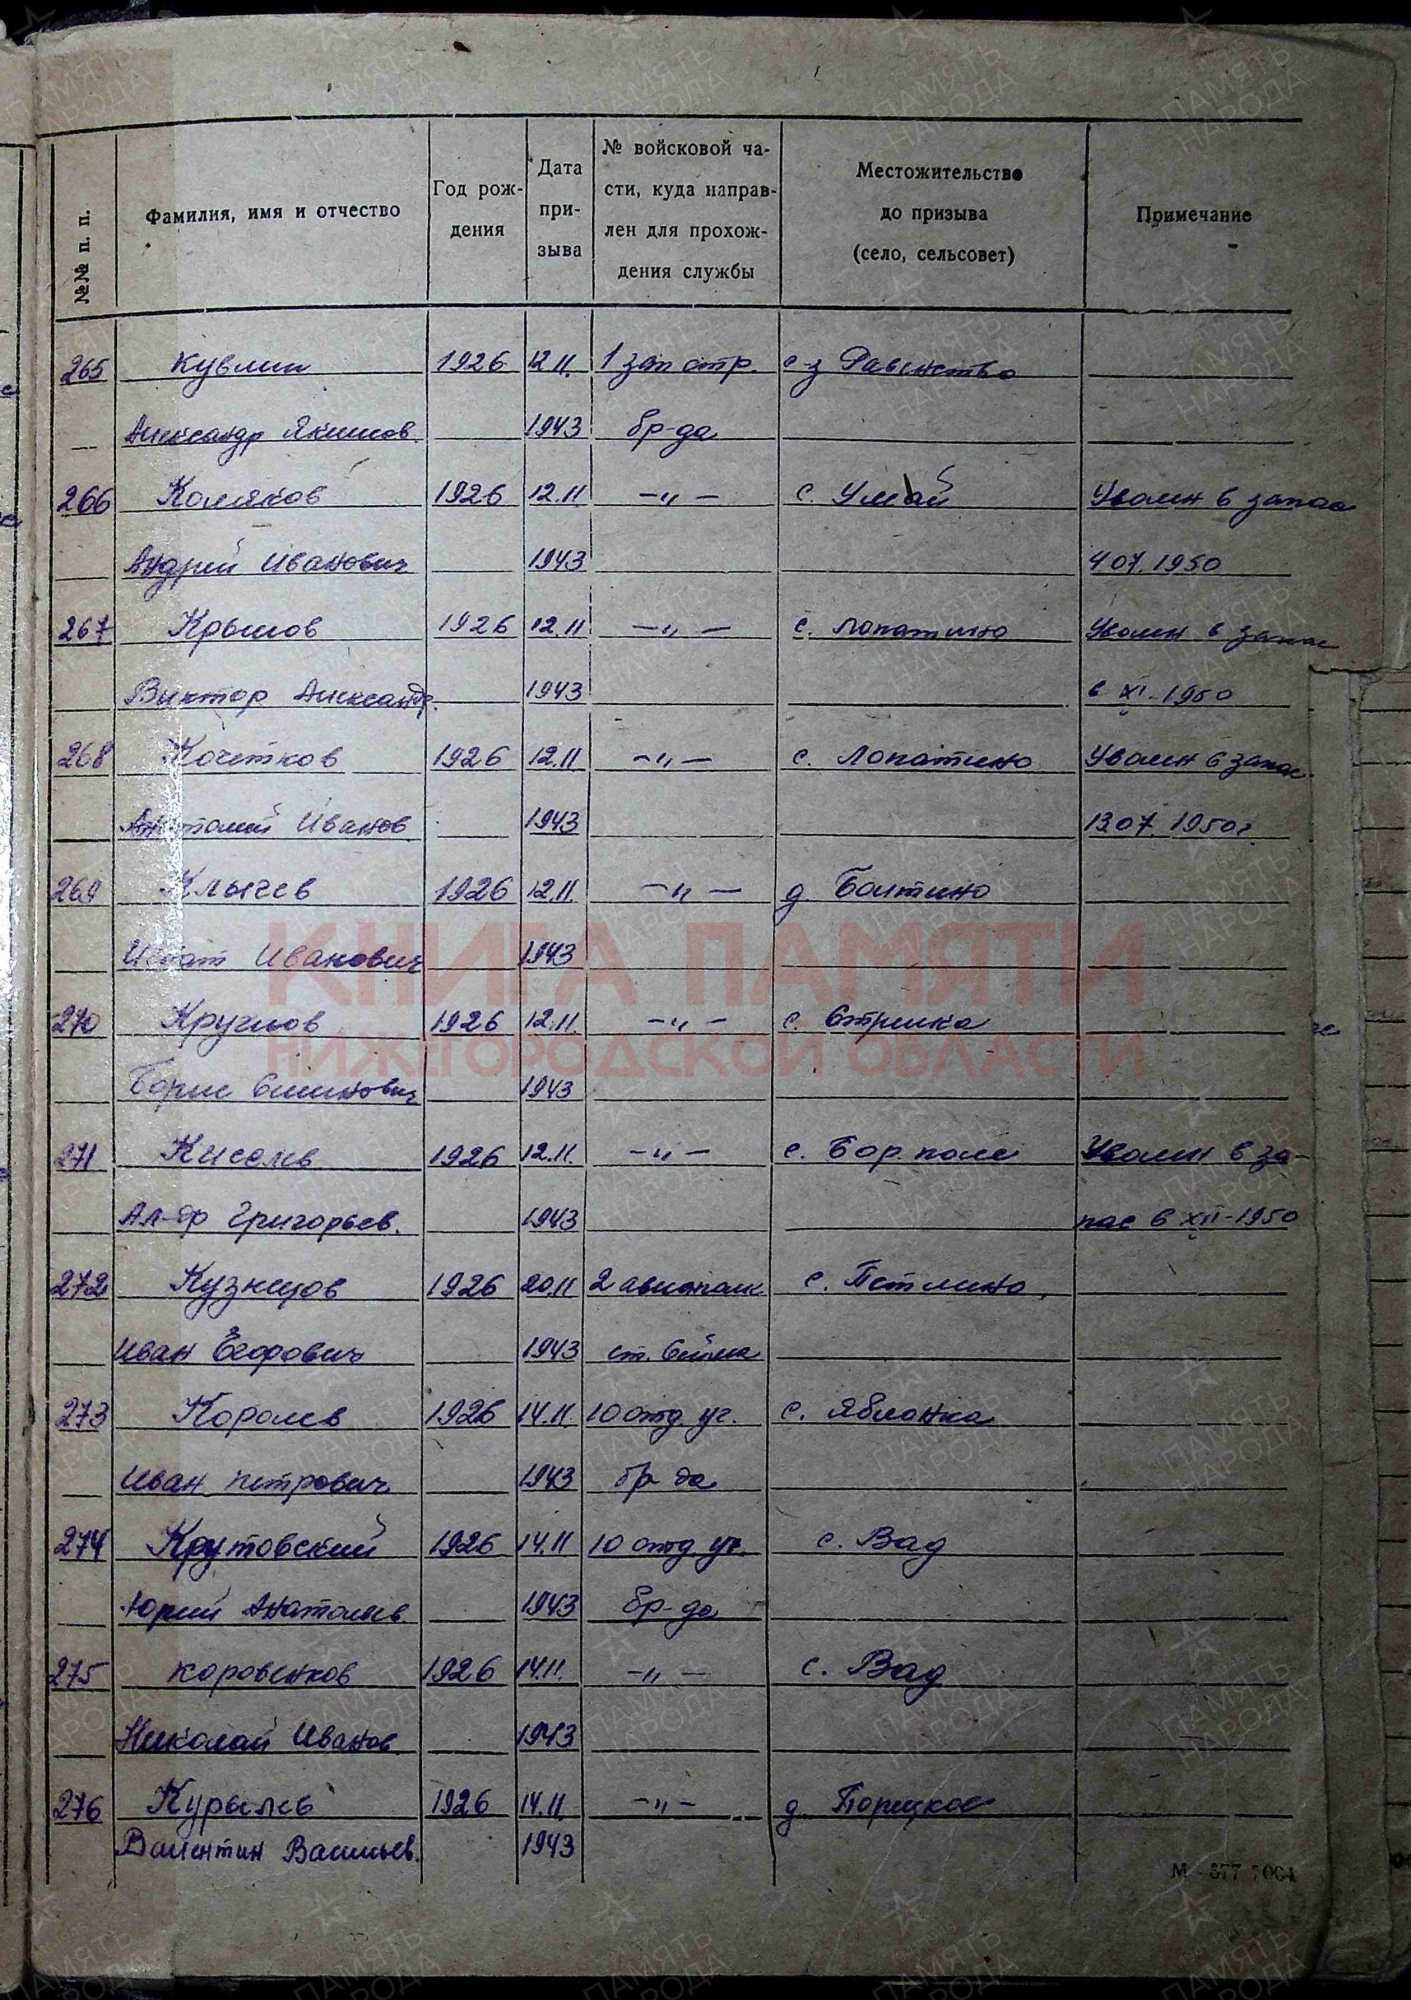 №№ п. п.
Фамилия, имя и отчество
Год рождения
Дата призыва
№ войсковой части, куда направлен для прохождения службы
Местожительство до призыва (село, сельсовет)
Примечание
265 Кувлин 1926 12.11. 1 зап стр. с-з Равенство
Александр Якимов. 1943 бр-да
266 Комяков 1926 12.11 -"- с. Умай Уволен в запас
Андрей Иванович 1943 4 07. 1950
267 Крылов 1926 12.11 -"- с. Лопатино Уволен в запас
Виктор Александр. 1943 в XI-1950
268 Кочетков 1926 12.11 -"- с. Лопатино Уволен в запас
Анатолий Иванов 1943 13.07. 1950г.
269 Клычев 1926 12.11. -"- д Болтино
Игнат Иванович 1943
270 Круглов 1926 12.11. -"- с. Стрелка
Борис Семенович 1943
271 Киселев 1926 12.11. -"- с. Бор. поле Уволен в за-
Ал-др Григорьев. 1943 пас в XII-1950
272 Кузнецов 1926 20.11 2 авиополк с. Петлино
Иван Егорович 1943 ст. Сейма
273 Королев 1926 14.11. 10 отд уч. с. Яблонка
Иван Петрович 1943 бр-да
274 Крутовский 1926 14.11 10 отд уч. с. Вад
Юрий Анатольев. 1943 бр-да
275 Коровенков 1926 14.11. -"- с. Вад
Николай Иванов. 1943
276 Курылев 1926 14.11 -"- д. Порецкое
Валентин Васильев. 1943
КНИГА ПАМЯТИ
НИЖЕГОРОДСКОЙ ОБЛАСТИ
ПАМЯТЬ НАРОДА